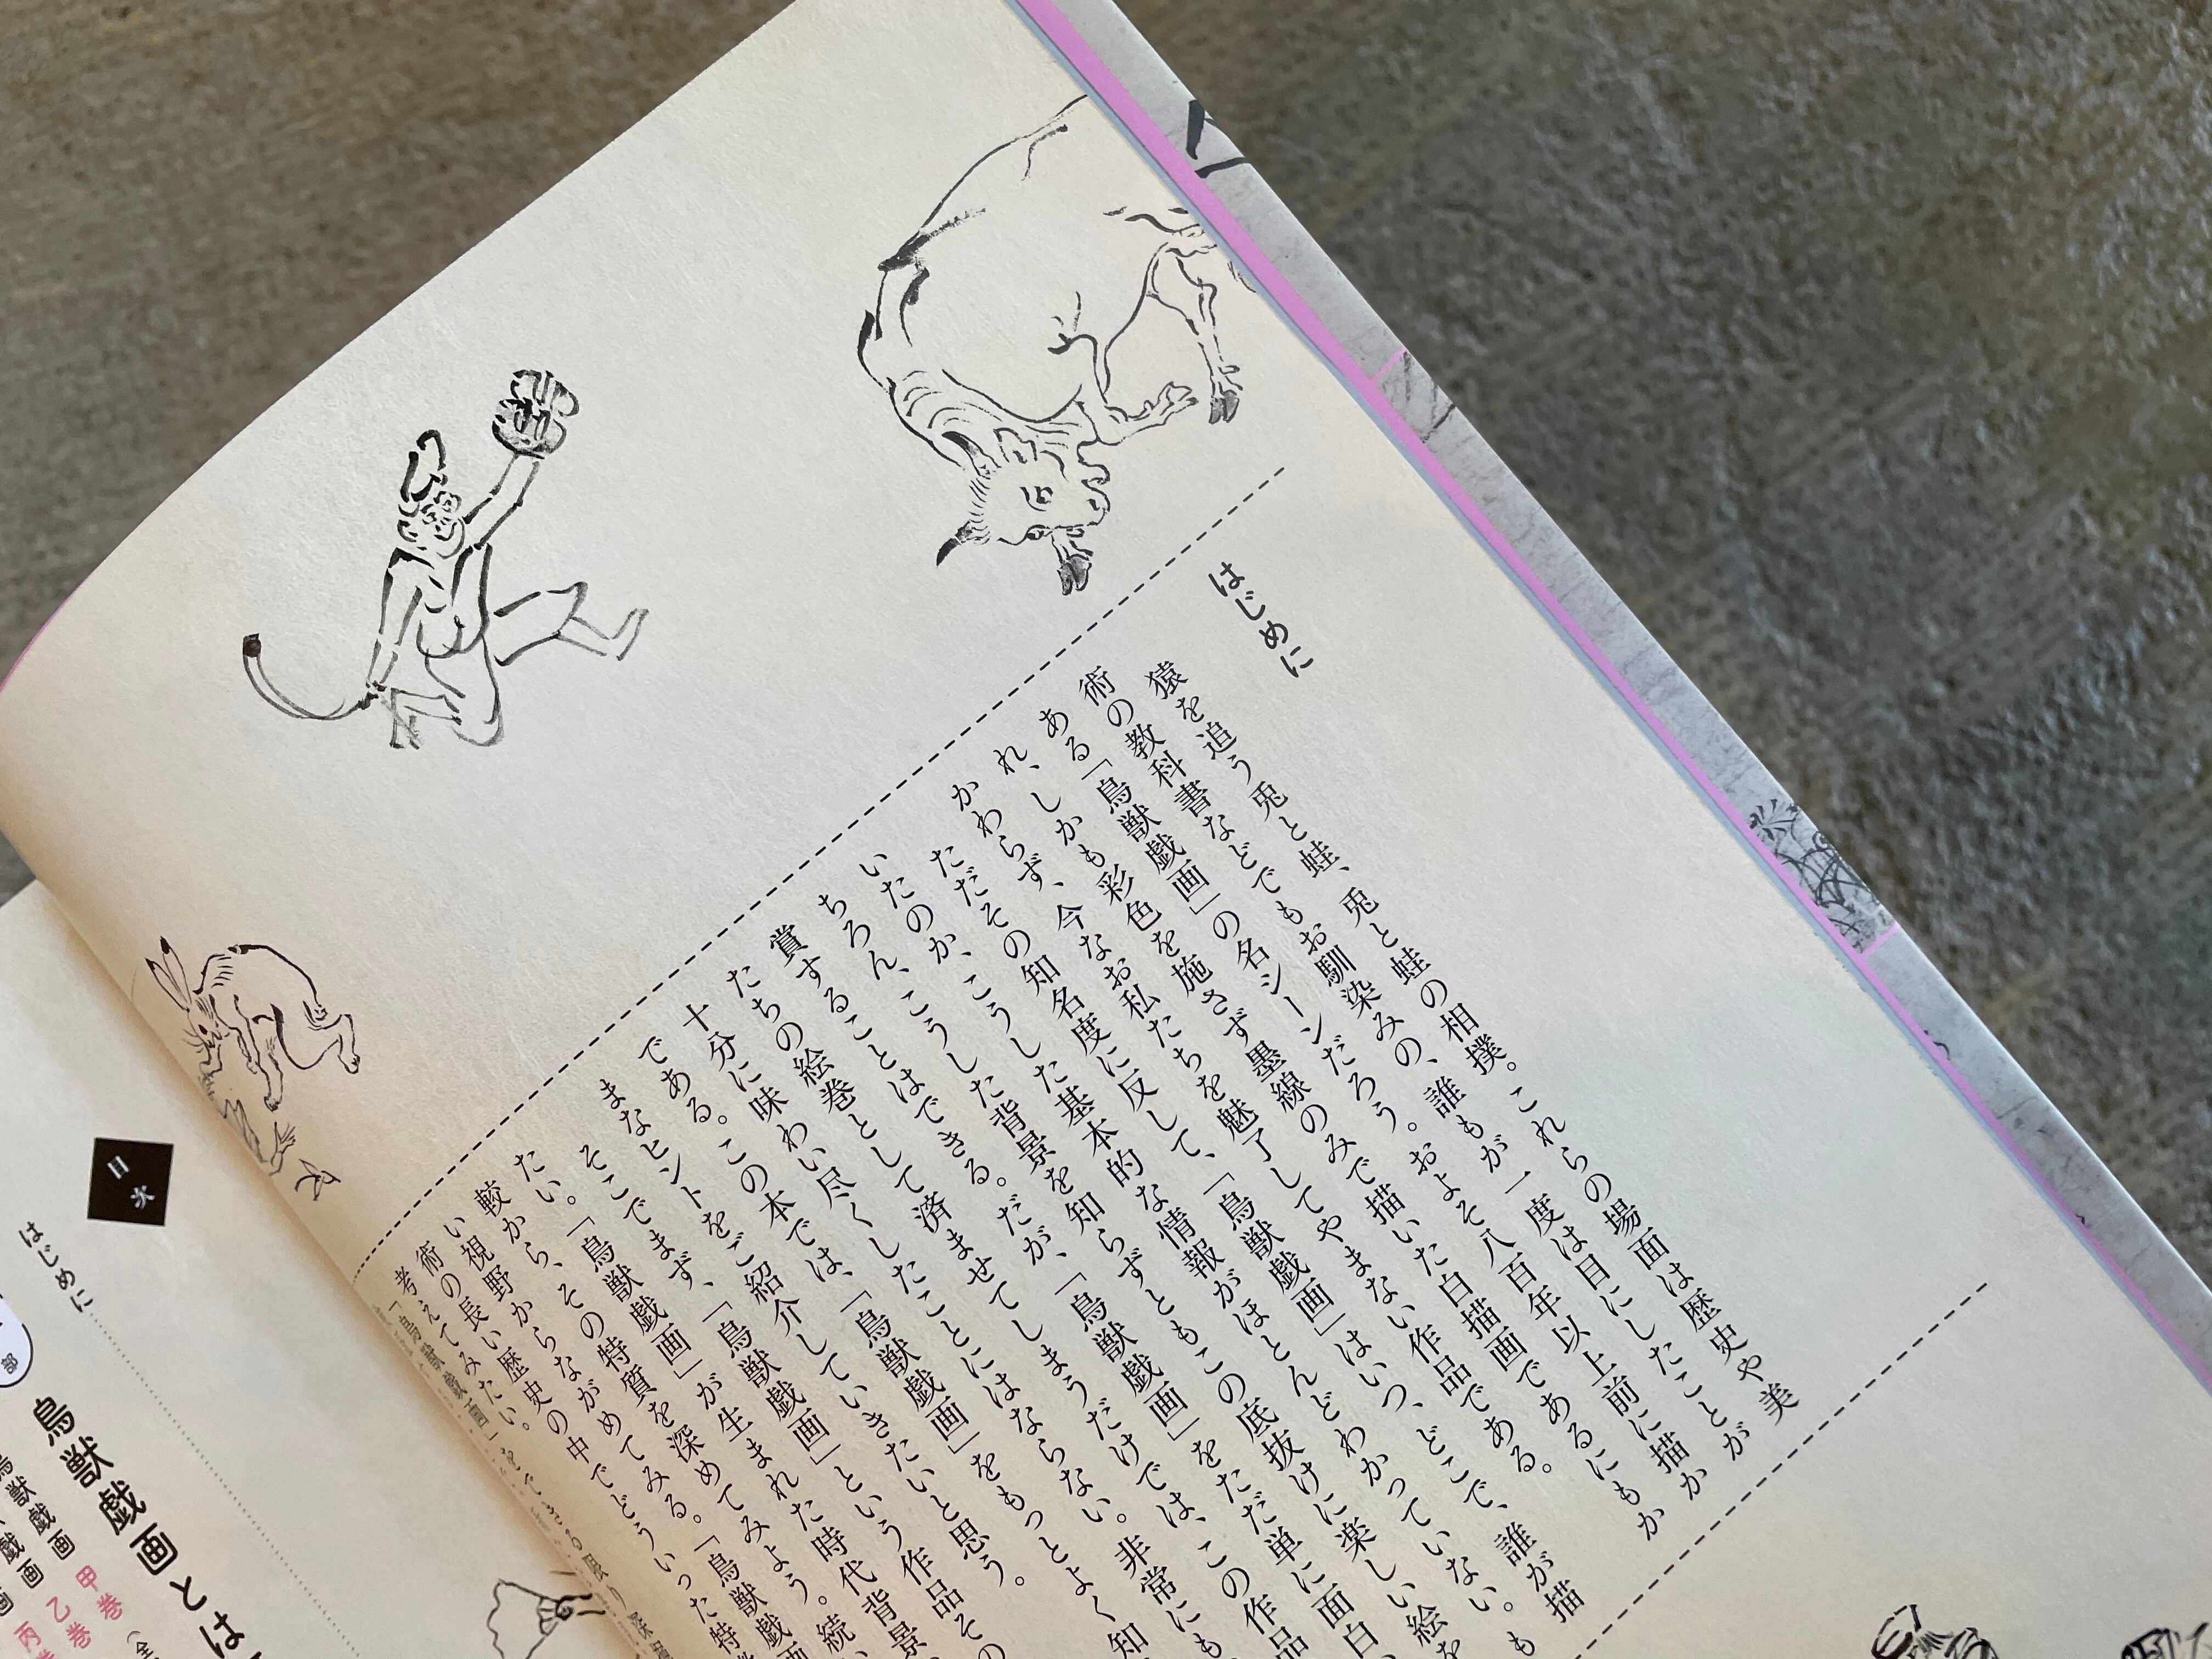 はじめに
猿を追う兎と蛙、兎と蛙の相撲。これらの場面は歴史や美
術の教科書などでもお馴染みの、誰もが一度は目にしたことが
ある「鳥獣戯画」の名シーンだろう。およそ八百年以上前に描か
れ、しかも彩色を施さず墨線のみで描いた白描画であるにもか
かわらず、今なお私たちを魅了してやまない作品である。
ただその知名度に反して、「鳥獣戯画」はいつ、どこで、誰が描
いたのか、こうした基本的な情報がほとんどわかっていない。も
ちろん、こうした背景を知らずともこの底抜けに楽しい絵を
賞することはできる。だが、「鳥獣戯画」をただ単に面白
たちの絵巻として済ませてしまうだけでは、この作品
十分に味わい尽くしたことにはならない。非常にも
である。この本では、「鳥獣戯画」をもっとよく知
まなヒントをご紹介していきたいと思う。
そこでまず、「鳥獣戯画」という作品その
たい。「鳥獣戯画」が生まれた時代背景
較から、その特質を深めてみよう。続い
い視野からながめてみる。「鳥獣戯画
術の長い歴史の中でどういった特
考えてみたい。
「鳥獣戯画」をできる限り
目次
はじめに
部
鳥獣戯画とは
鳥獣戯画 甲巻
鳥獣戯画 乙巻
戯画 丙